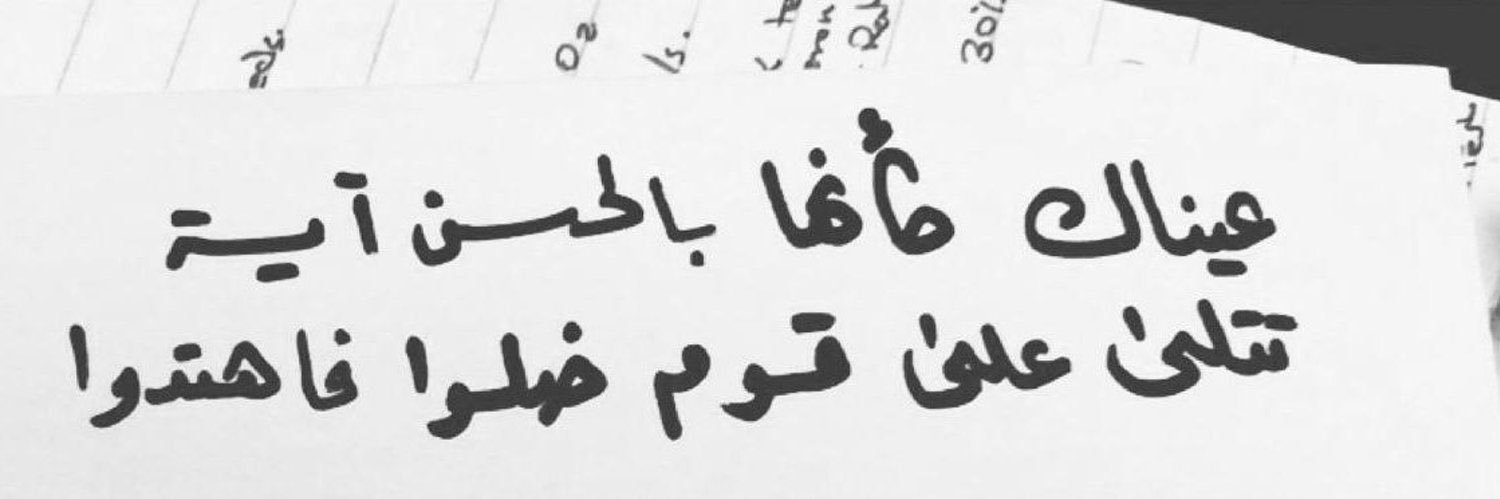 عيناك كأنها بالحسن آية
تتلىٰ علىٰ قوم ضلوا فاهتدوا
O2
30%